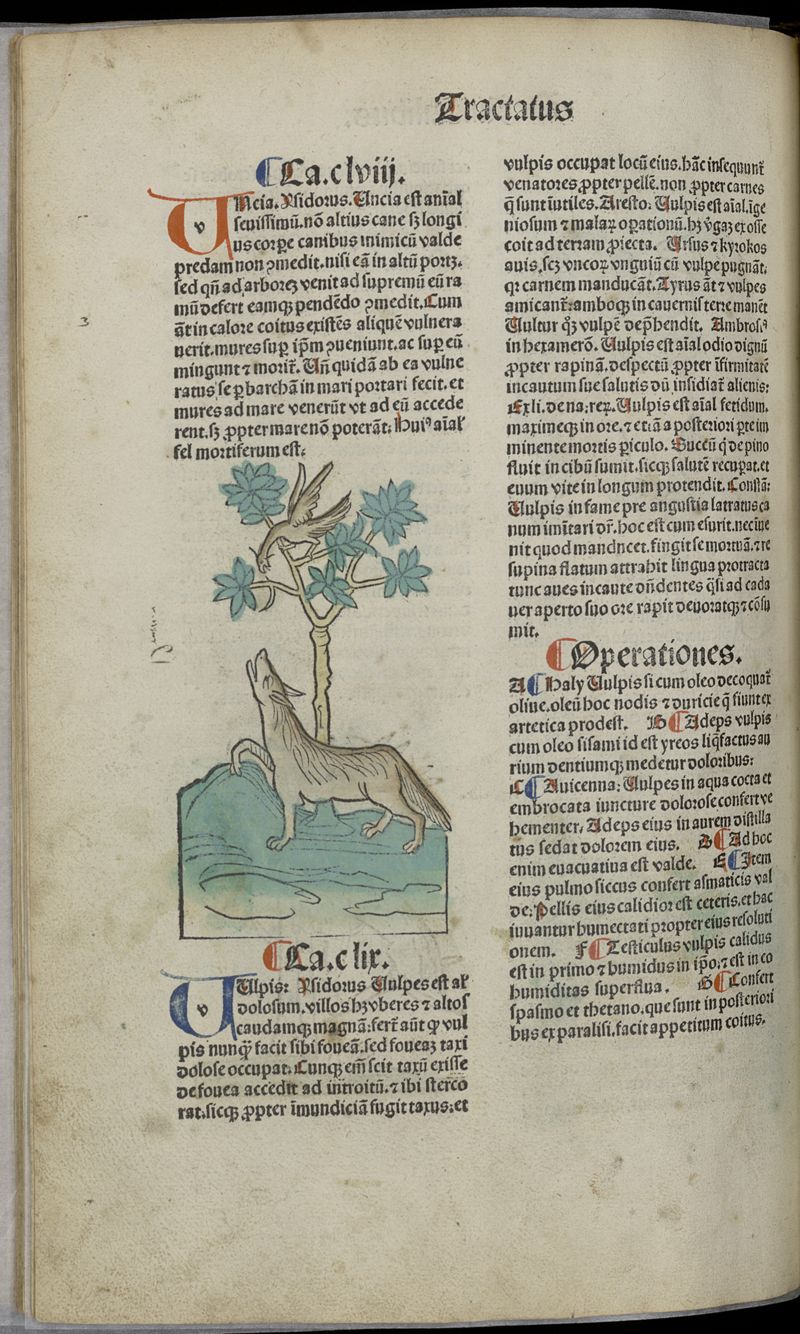 Tractatus
¶Ca.clviij.
VNcia. Ysidorus. Uncia est aīal
seuissimū. nō altius cane sꝫ longi
us corpe canibus inimicū valde
predam non ꝯmedit. nisi eā in altū portꝫ.
sed qn̄ ad arboreꝫ venit ad supremū eū ra
mū defert eamqꝫ pendēdo ꝯmedit. Cum
āt in calore coitus existēs aliquē vulnera
uerit. mures suꝑ ip̄m ꝯueniunt. ac suꝑ eū
mingunt ⁊ morit᷑. Un̄ quidā ab ea vulne
ratus se ꝑ barchā in mari portari fecit. et
mures ad mare venerūt vt ad eū accede
rent. sꝫ ꝓpter mare nō poterāt: Huiꝰ aīal̕
fel mortiferum est:
¶Ca.clix.
VUlpis: Ysidorus Uulpes est al̕
dolosum. villos hꝫ vberes ⁊ altos
caudamqꝫ magnā: fert᷑ aūt ꝙ vul
pis nunqꝫ̄ facit sibi foueā. sed foueaꝫ taxi
dolose occupat. Cunqꝫ em̄ scit taxū exisse
de fouea accedit ad introitū. ⁊ ibi sterco
rat. sicqꝫ ꝓpter īmundiciā fugit taxus: et
vulpis occupat locū eius. hāc insequunt᷑
venatores ꝓpter pellē. non ꝓpter carnes
q̄ sunt īutiles. Aresto: Uulpis est aīal īge
niosum ⁊ malaꝝ oꝑationū. hꝫ v̄gaꝫ ex osse
coit ad terram ꝓiecta. Ursus ⁊ kyrokos
auis, scꝫ vncoꝝ vnguiū cū vulpe pugnāt:
qꝛ carnem manducāt. Tyrus āt ⁊ vulpes
amicant᷑: amboqꝫ in cauernis terre manēt
Uultur qꝫ vulpē dep̄hendit. Ambrosꝰ
in hexamerō. Uulpis est aīal odio dignū
ꝓpter rapinā. despectū ꝓpter īfirmitatē
incautum sue salutis dū insidiat᷑ alienis:
Ex li. de na: reꝝ. Uulpis est aīal fetidum.
maximeqꝫ in ore. ⁊ etiā a posteriori ꝑte im
minente mortis ꝑiculo. Succū q̄ de pino
fluit in cibū sumit. sicqꝫ salutē recuꝑat. et
euum vite in longum protendit. Constā:
Uulpis in fame pre angustia latratus ca
num imītari dr̄. hoc est cum esurit. nec īue
nit quod manducet. fingit se mortuā. ⁊ re
supina flatum attrahit lingua protracta
tunc aues incaute dn̄dentes q̄si ad cada
uer aperto suo ore rapit deuoratqꝫ ⁊ cōsu
mit.
¶Operationes.
A¶Haly Uulpis si cum oleo decoquat᷑
oliue. oleū hoc nodis ⁊ duricie q̄ fiunt ex
artetica prodest. B¶Adeps vulpis
cum oleo sisami id est yreos liq̄factus au
rium dentiumqꝫ medetur doloribus:
C¶Auicenna: Uulpes in aqua cocta et
embrocata iuncture dolorose confert ve
hementer. Adeps eius in aurem distilla
tus sedat dolorem eius. D¶Ad hoc
enim euacuatiua est valde. E¶Item
eius pulmo siccus confert asmaticis val
de: Pellis eius calidior est ceteris. et hac
iuuantur humectati propter eius resoluti
onem. F¶Testiculus vulpis calidus
est in primo ⁊ humidus in ip̄o: ⁊ est in eo
humiditas superflua. G¶Confert
spasmo et thetano. que sunt in posteriori
bus ex paralisi. facit appetitum coitus.